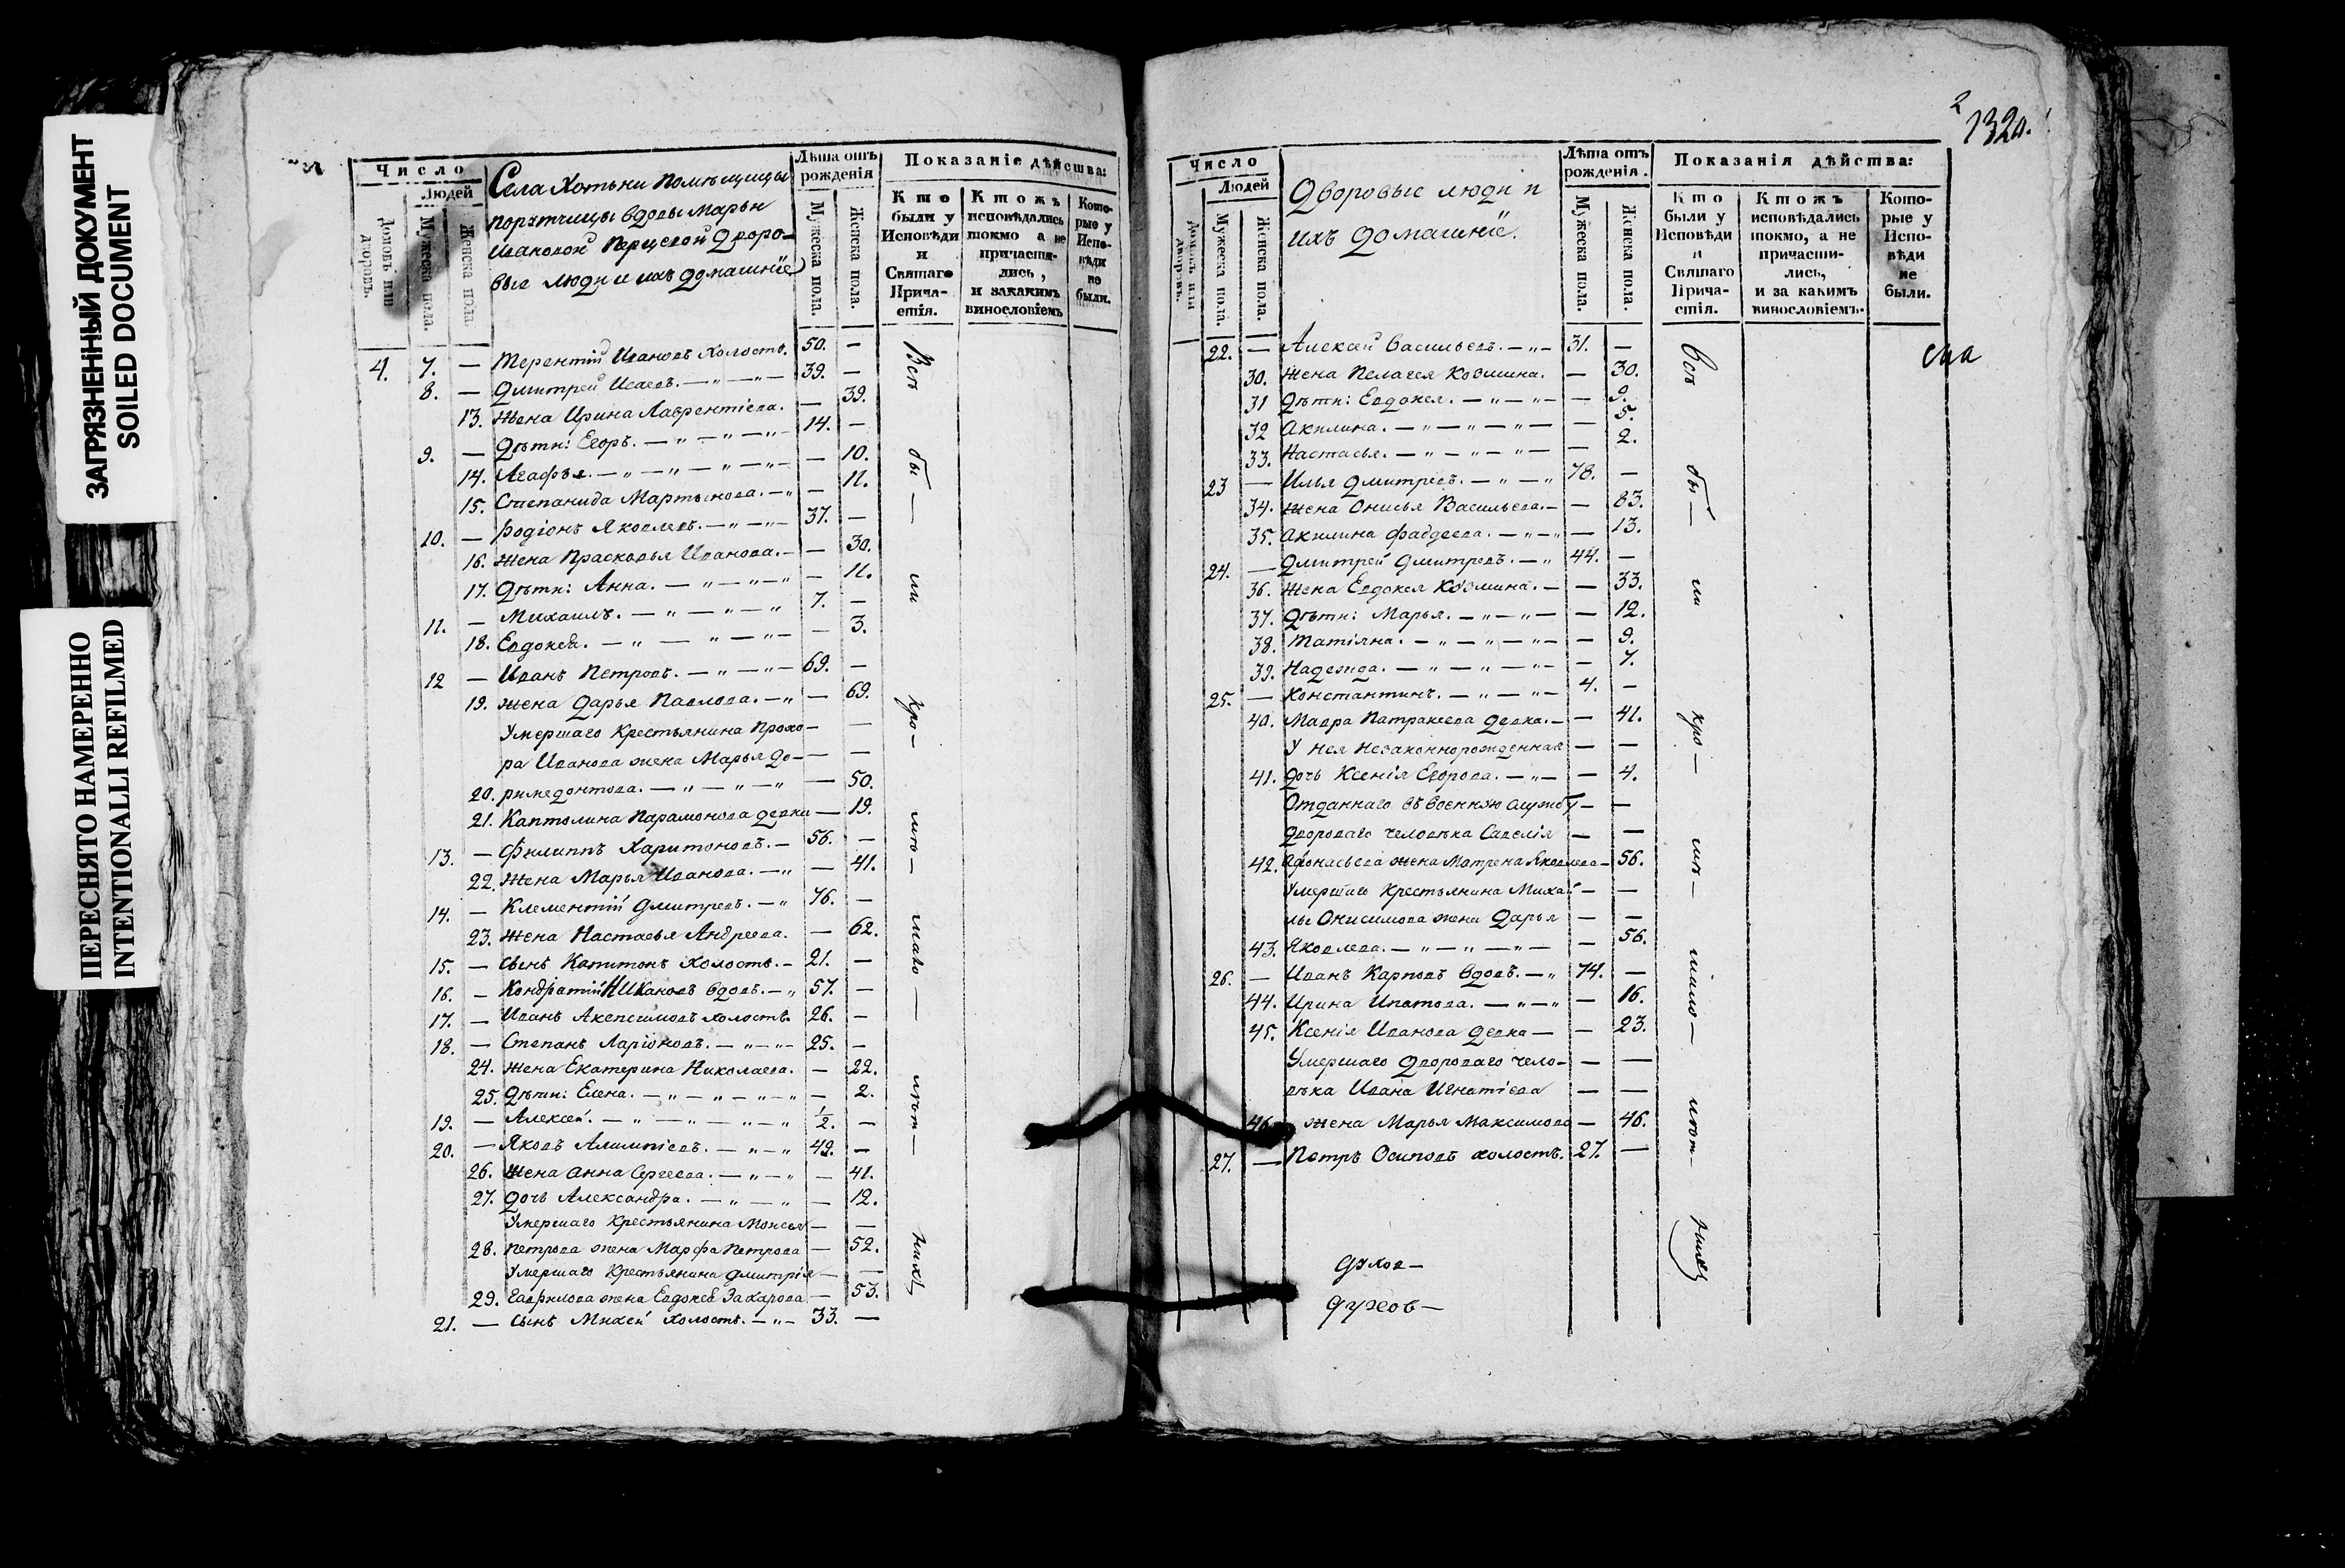 ЗАГРЯЗНЕННЫЙ ДОКУМЕНТ
SOILED DOCUMENT
ПЕРЕСНЯТО НАМЕРЕННО
INTENTIONALLI REFILMED
Число
Людей
Домовъ или дворовъ.
Мужеска пола.
Женска пола.
Села Хотьни помѣщицы
порутчицы вдовы Марьи
Ивановой Перцевой Дворо-
выя люди и ихъ домашніе
Лѣта отъ рожденія
Мужеска пола.
Женска пола.
Показаніе дѣйства:
Кто были у Исповѣди и Святаго Причастія.
Ктожъ исповѣдались токмо а не причастились, и закакимъ винословіемъ
Которые у Исповѣди не были.
4. 7. — Терентій Ивановъ холостъ. 50. —
8. — Дмитрей Исаевъ. — „ — „ — 39. —
13. Жена Ирина Лаврентіева. — 39.
9. — Дѣти: Егоръ. — „ — „ — „ — 14. —
14. Агафья. — „ — „ — „ — „ — — 10.
15. Степанида Мартынова. — „ — 11.
10. — Родіонъ Яковлевъ. — „ — „ — 37. —
16. Жена Прасковья Иванова. — — 30.
17. Дѣти: Анна. — „ — „ — „ — 11.
11. — Михаилъ. — „ — „ — „ 7. —
18. Евдокея. — „ — „ — „ — — 3.
12 — Иванъ Петровъ. — „ — „ — 69. —
19. Жена Дарья Павлова. — „ — 69.
Умершаго Крестьянина Прохо- — —
ра Иванова жена Марья До- — —
20. римедонтова. — „ — „ — „ — 50.
21. Каптолина Парамонова девка — 19.
13. — Филиппъ Харитоновъ. — 56. —
22. Жена Марья Иванова. — „ — 41.
14. — Клементій Дмитревъ. — „ 76. —
23. Жена Настасья Андреева. — 62.
15. — Сынъ Капитонъ холостъ. — 21. —
16. — Кондратій Никановъ вдовъ. — „ 57. —
17. — Иванъ Акепсимовъ холостъ. 26. —
18. — Степанъ Ларіоновъ. — „ — „ — 25. —
24. Жена Екатерина Николаева. — 22.
25. Дѣти: Елена. — „ — „ — „ — „ — 2.
19. — Алексей. — „ — „ — „ — „ ½. —
20. — Яковъ Алимпіевъ. — „ — „ 42. —
26. Жена Анна Сергеева. — „ — „ — 41.
27. Дочь Александра. — „ — „ — 12.
Умершаго Крестьянина Моисея — —
28. Петрова жена Марфа Петрова — 52.
Умершаго Крестьянина Дмитрія — —
29. Гаврилова жена Евдокея Захарова — 53.
21. — Сынъ Михей холостъ. — „ — 33. —
Всѣ бы — ли
2
132о.
Число
Людей
Мужеска пола.
Женска пола.
Дворовые люди и
ихъ домашніе.
Лѣта отъ рожденія.
Мужеска пола.
Женска пола.
Показанія дѣйства:
Кто были у Исповѣди и Святаго Причастія.
Ктожъ исповѣдались токмо, а не причастились, и за какимъ винословіемъ.
Которые у Исповѣди не были.
22. — Алексей Васильевъ. — „ — 31. —
30. Жена Пелагея Козмина. — 30.
31 Дѣти: Евдокея. — „ — „ — — 9.
32 Акилина. — „ — „ — „ — — 5.
33. Настасья. — „ — „ — „ — — 2.
23 — Илья Дмитревъ. — „ — „ 78. —
34. Жена Онисья Васильева. — — 83.
35. Акилина Фаддеева. — „ — „ — 13.
24. — Дмитрей Дмитревъ. — „ 44. —
36. Жена Евдокея Козмина. — — 33.
37. Дѣти: Марья. — „ — „ — — 12.
38. Татіяна. — „ — „ — „ — — 9.
39. Надежда. — „ — „ — „ — — 7.
25. — Константинъ. — „ — „ — 4. —
40. Мавра Патракеева девка. — — 41.
У нея незаконнорожденная — —
41. дочь Ксенія Егорова. — „ — — 4.
Отданнаго въ военную службу — —
дворового человѣка Савелія — —
42. Афонасьева жена Матрена Яковлева — 56.
Умершаго Крестьянина Михай — —
лы Онисимова жена Дарья — —
43. Яковлева. — „ — „ — „ — — 56.
26. — Иванъ Карповъ вдовъ. — „ 74. —
44. Ирина Ипатова. — „ — „ — 16.
45. Ксенія Иванова девка — — 23.
Умершаго Дворового чело- — —
вѣка Ивана Игнатіева — —
46. жена Марья Максимова — 46.
27. — Петръ Осиповъ холостъ. 27. —
Всѣ бы — ли
духов —